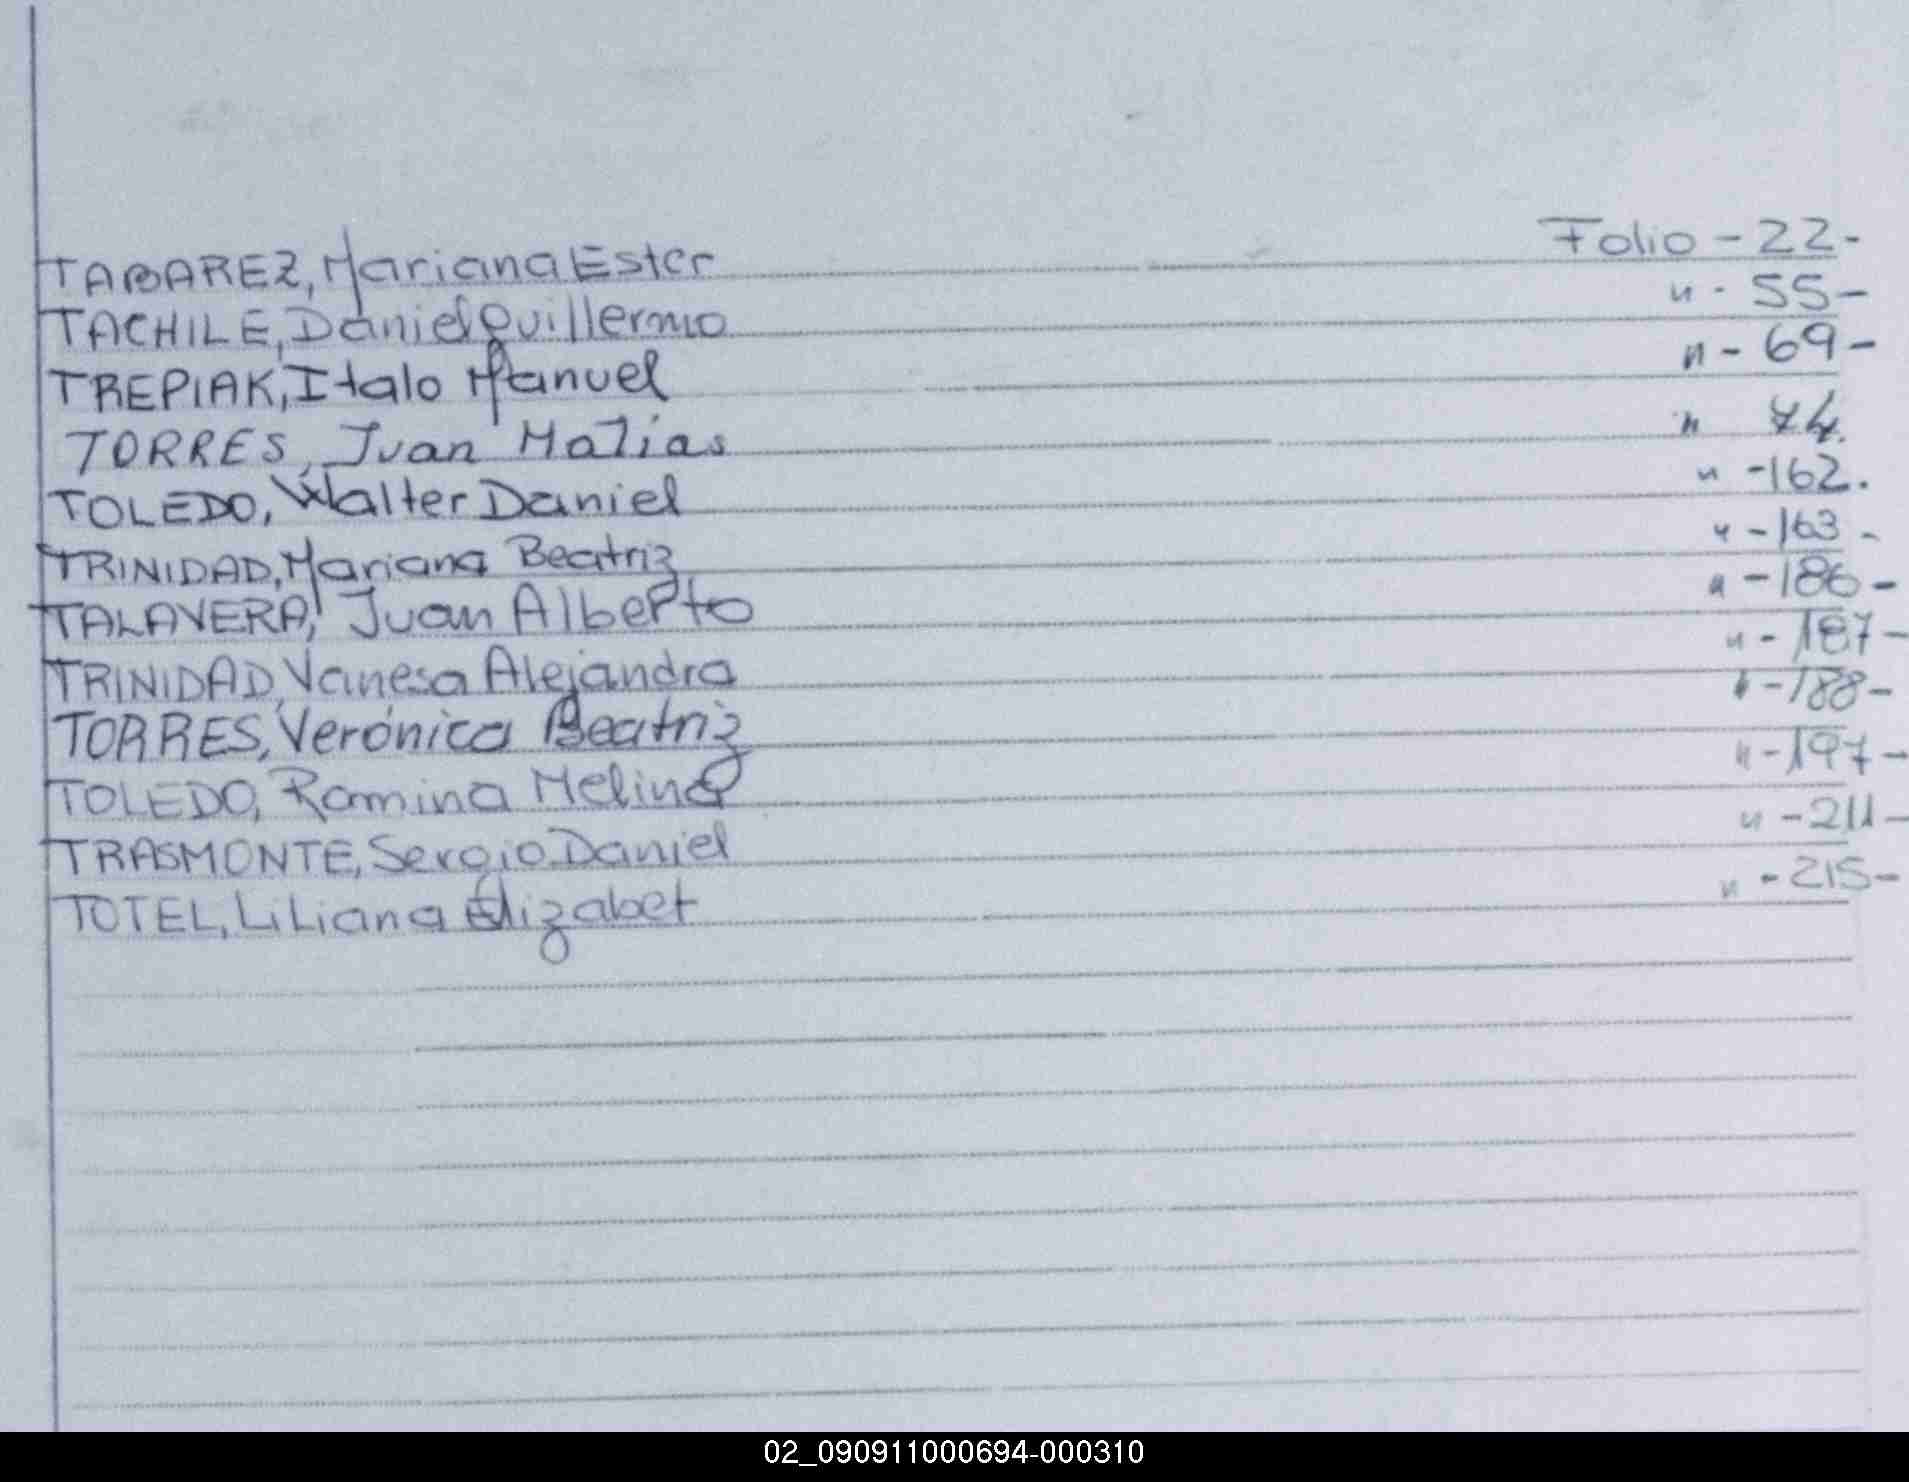 TABAREZ, Mariana Ester Folio - 22 -
TACHILE, Daniel Guillermo " - 55 -
TREPIAK, Italo Manuel " - 69 -
TORRES, Juan Matias " 74.
TOLEDO, Walter Daniel " - 162.
TRINIDAD, Mariana Beatriz " - 163 -
TALAVERA, Juan Alberto " - 186 -
TRINIDAD, Vanesa Alejandra " - 187 -
TORRES, Verónica Beatriz " - 188 -
TOLEDO, Romina Melina " - 197 -
TRASMONTE, Sergio Daniel " - 211 -
TOTEL, Liliana Elizabet " - 215 -
02_090911000694-000310